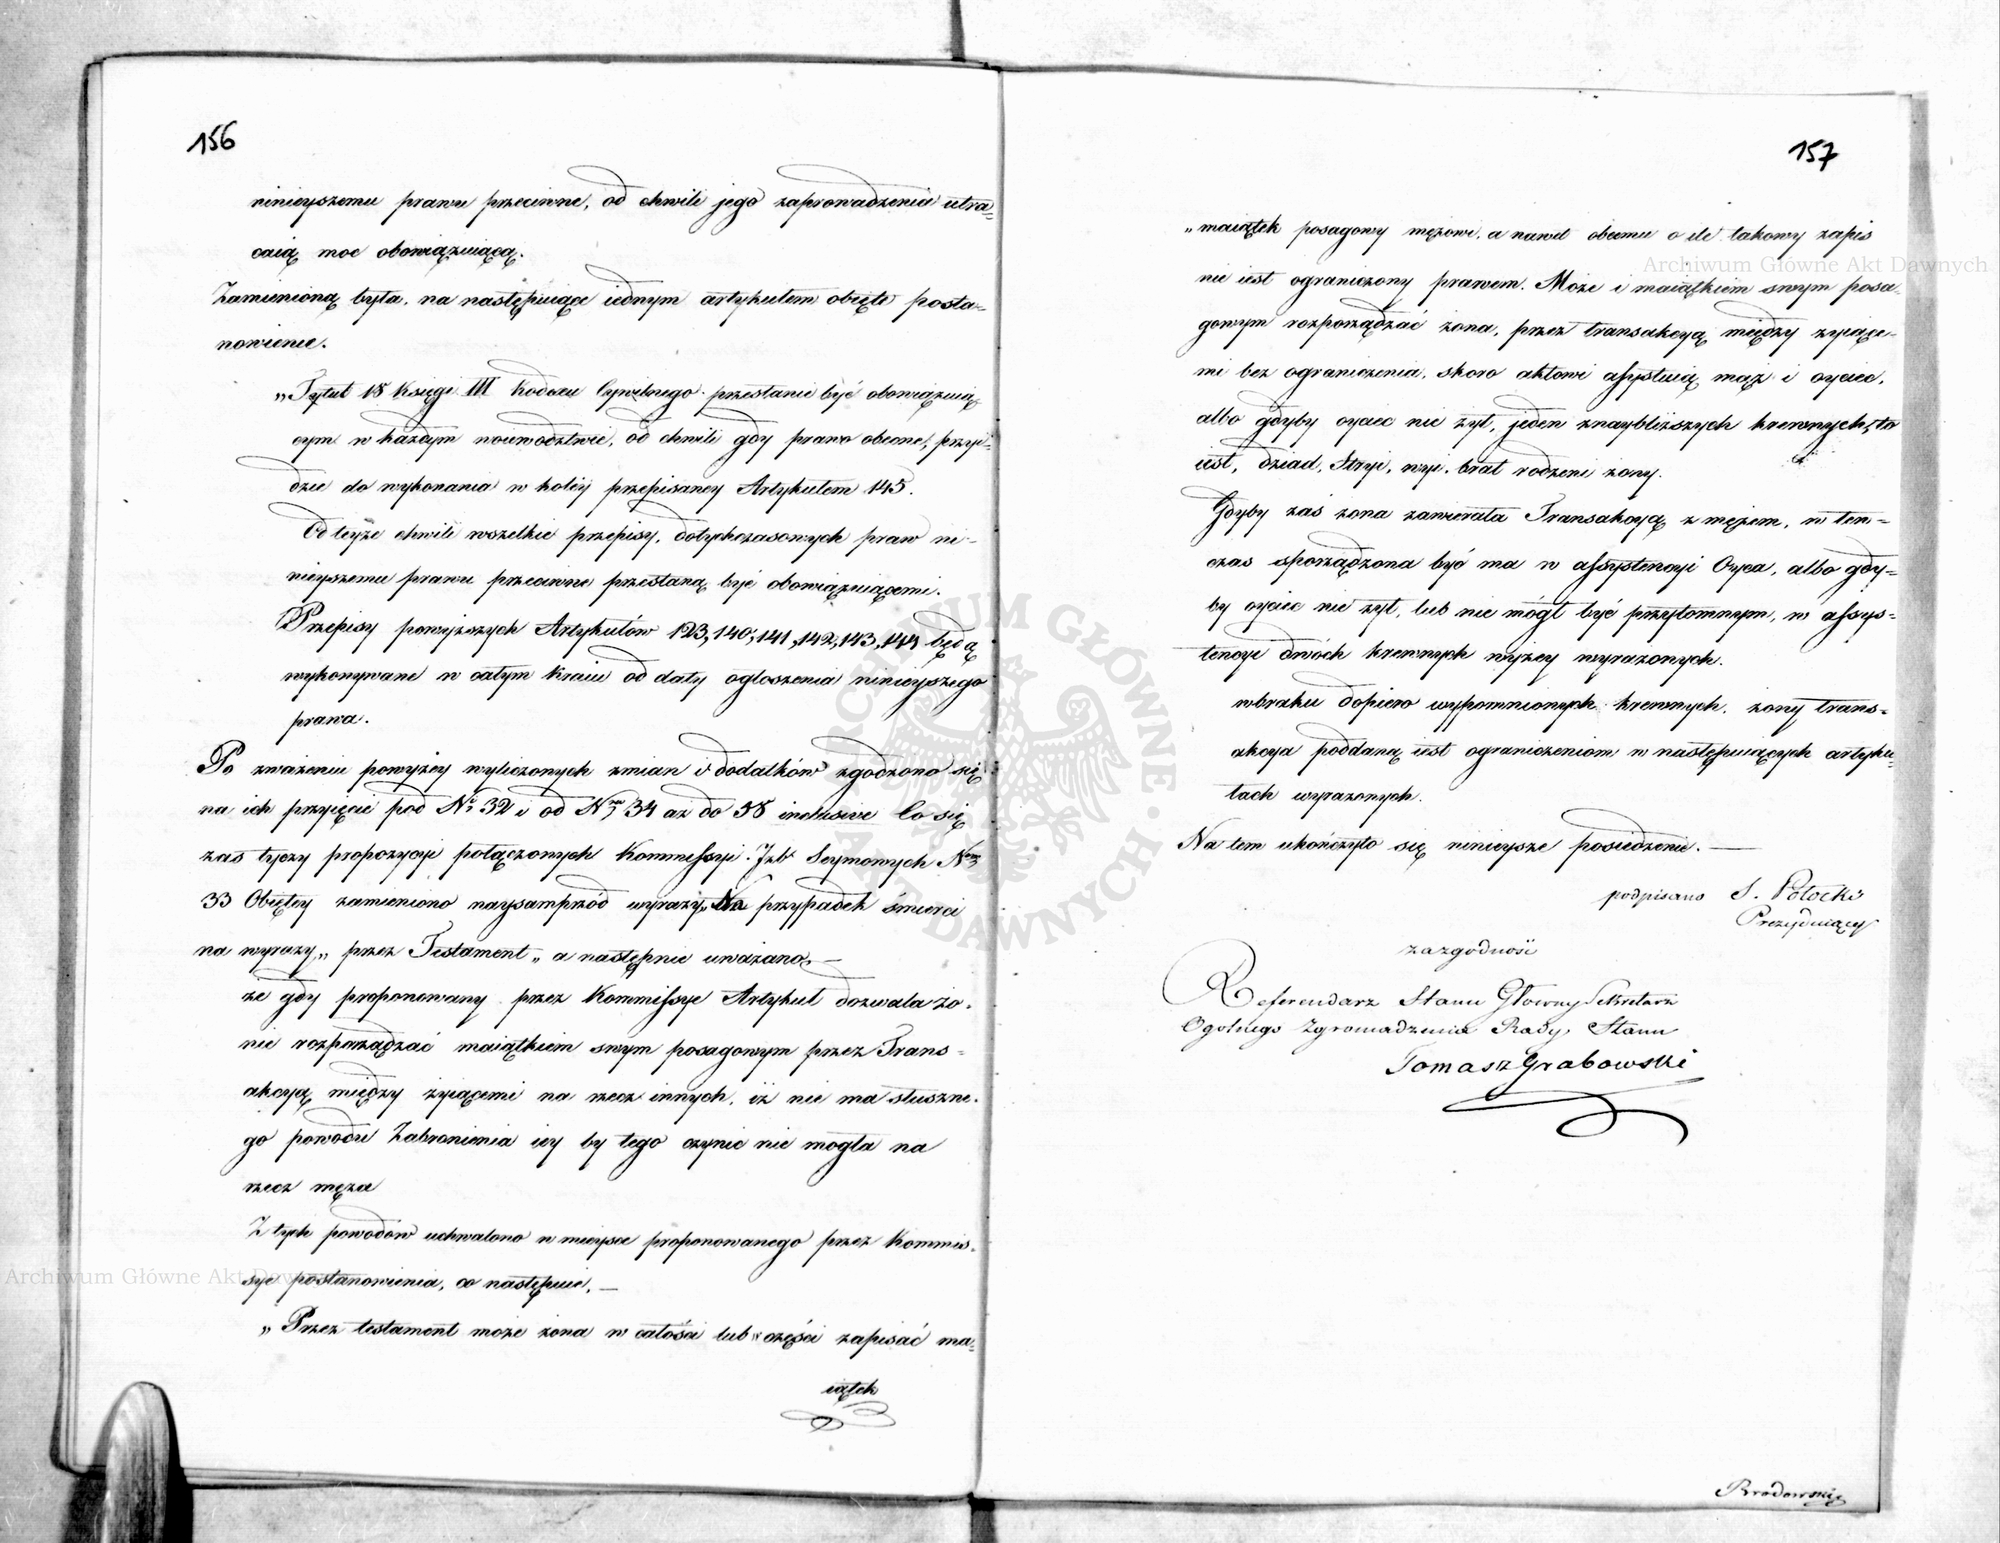 156
ninieyszemu prawu przeciwne, od chwili jego zaprowadzenia utra=
caią moc obowiązuiącą.
Zamienioną była, na następuiące iednym artykułem obięte posta=
nowienie.
„Tytuł 18 Księgi III Kodexu Cywilnego przestanie być obowiązuią
cym w każdym woiewództwie, od chwili gdy prawo obecne, przyi=
dzie do wykonania w koléy przepisaney Artykułem 145.
Od teyże chwili wszelkie przepisy, dotychczasowych praw ni=
nieyszemu prawu przeciwne przestaną być obowiązuiącemi.
Przepisy powyższych Artykułów 123, 140, 141, 142, 143, 144 będą
wykonywane w całym Kraiu od daty ogłoszenia ninieyszego
prawa.
Po zważeniu powyżey wyliczonych zmian i dodatków zgodzono się
na ich przyięcie pod Nr 32 i od Nru 34 aż do 58 inclusive Co się
zaś tyczy propozycyi połączonych Kommissyi Izb Seymowych Nrem
33 Obiętey zamieniono naysamprzód wyrazy „Na przypadek śmierci
na wyrazy „ przez Testament „ a następnie uważano, —
że gdy proponowany przez Kommissye Artykuł dozwala żo=
nie rozporządzać maiątkiem swym posagowym przez Trans=
akcyą między żyiącemi na rzecz innych, iż nie ma słuszne=
go powodu Zabronienia iey by tego czynić nie mogła na
rzecz męża
Z tych powodów uchwalono w mieysce proponowanego przez Kommis=
sye postanowienia, co następuie, —
„ Przez testament może żona w całości lub w części zapisać ma=
iątek
157
„maiątek posagowy mężowi, a nawet obcemu o ile takowy zapis
nie iest ograniczony prawem. Może i maiątkiem swym posa=
gowym rozporządzać żona, przez transakcyą między żyiące=
mi bez ograniczenia, skoro aktowi assystuią mąż i oyciec,
albo gdyby oyciec nie żył, jeden znaybliższych krewnych, to
iest, dziad, Stryi, wuj, brat rodzeni żony.
Gdyby zaś żona zawierała Transakcyą z mężem, w ten=
czas sporządzona być ma w assystencyi Oyca, albo gdy=
by oyciec nie żył, lub nie mógł być przytomnym, w assys=
tencyi dwóch krewnych wyżey wyrażonych.
w braku dopiero wspomnionych krewnych, żony trans=
akcya poddaną iest ograniczeniom w następuiących artyku=
łach wyrażonych.
Na tem ukończyło się ninieysze posiedzenie. —
podpisano S. Potocki
Prezyduiący
za zgodność
Referendarz Stanu Główny Sekretarz
Ogólnego Zgromadzenia Rady Stanu
Tomasz Grabowski
Brodowski
Archiwum Główne Akt Dawnych
Archiwum Główne Akt Dawnych
ARCHIWUM GŁÓWNE · AKT DAWNYCH ·